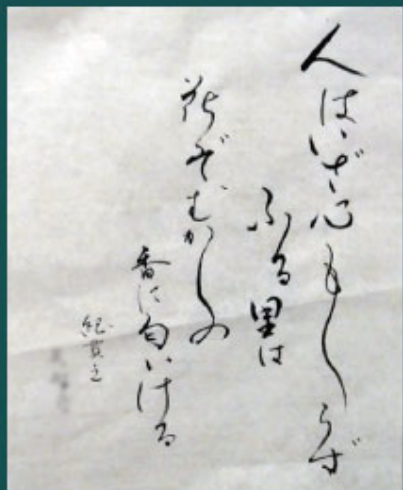 人はいざ心もしらず
ふる里は
花ぞむかしの
香に匂いける
紀貫之